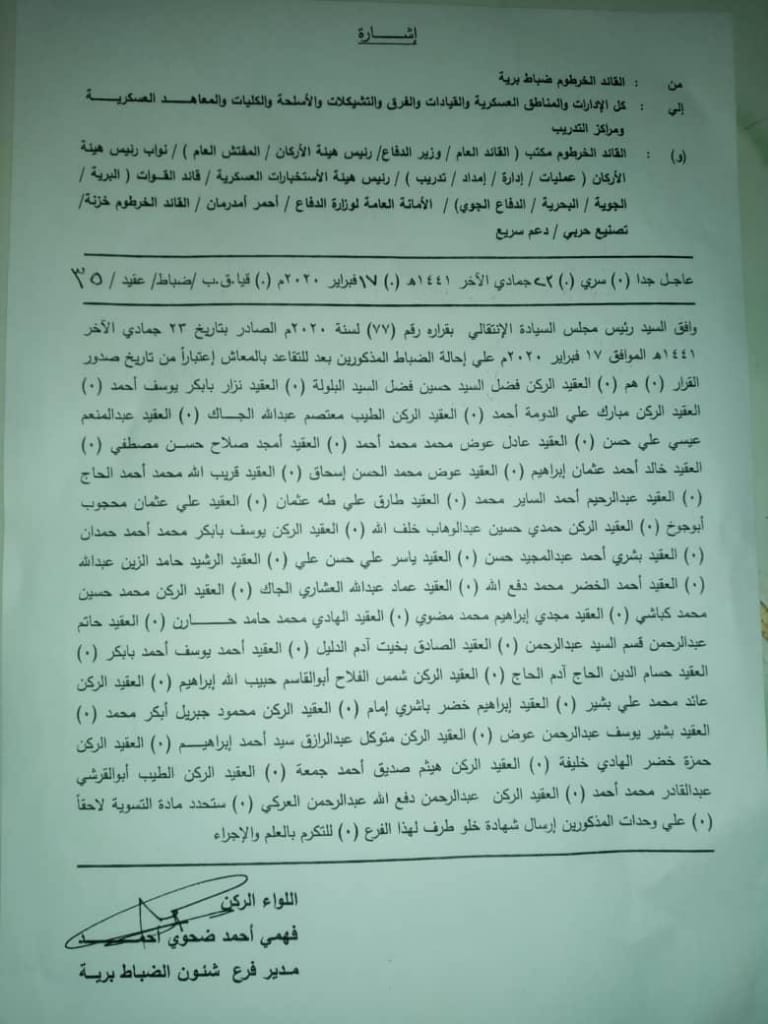 إشـــــارة
من : القائد الخرطوم ضباط برية
إلي : كل الإدارات والمناطق العسكرية والقيادات والفرق والتشيكلات والأسلحة والكليات والمعاهـــد العسكريـــــة
ومراكز التدريب
(و) : القائد الخرطوم مكتب ( القائد العام / وزير الدفاع/ رئيس هيئة الأركان / المفتش العام ) / نواب رئيس هيئة
الأركان ( عمليات / إدارة / إمداد / تدريب ) / رئيس هيئة الأستخبارات العسكرية / قائد القوات ( البرية /
الجوية / البحرية / الدفاع الجوي) / الأمانة العامة لوزارة الدفاع / أحمر أمدرمان / القائد الخرطوم خزنة/
تصنيع حربي / دعم سريع
عاجل جدا (٠) سري (.) ٢٢ جمادي الآخر ١٤٤١هـ (.) ١٧ فبراير ٢٠٢٠م (.) قيا.ق.ب /ضباط/ عقيد / ٣٥
وافق السيد رئيس مجلس السيادة الإنتقالي بقراره رقم (٧٧) لسنة ٢٠٢٠م الصادر بتاريخ ٢٣ جمادي الآخر
١٤٤١هـ الموافق ١٧ فبراير ٢٠٢٠م علي إحالة الضباط المذكورين بعد للتقاعد بالمعاش إعتباراً من تاريخ صدور
القرار (٠) هم (٠) العقيد الركن فضل السيد حسين فضل السيد البلولة (٠) العقيد نزار بابكر يوسف أحمد (٠)
العقيد الركن مبارك علي الدومة أحمد (٠) العقيد الركن الطيب معتصم عبدالله الجـــاك (٠) العقيد عبدالمنعم
عيسي علي حسن (٠) العقيد عادل عوض محمد محمد أحمد (٠) العقيد أمجد صلاح حســن مصطفي (٠)
العقيد خالد أحمد عثمان إبراهيم (٠) العقيد عوض محمد الحسن إسحاق (٠) العقيد قريب الله محمد أحمد الحاج
(٠) العقيد عبدالرحيم أحمد الساير محمد (٠) العقيد طارق علي طه عثمان (٠) العقيد علي عثمان محجوب
أبوجوخ (٠) العقيد الركن حمدي حسين عبدالوهاب خلف الله (٠) العقيد الركن يوسف بابكر محمد أحمد حمدان
(٠) العقيد بشري أحمد عبدالمجيد حسن (٠) العقيد ياسر علي حسن علي (٠) العقيد الرشيد حامد الزين عبدالله
(٠) العقيد أحمد الخضر محمد دفع الله (٠) العقيد عماد عبدالله العشاري الجاك (٠) العقيد الركن محمد حسين
محمد كباشي (٠) العقيد مجدي إبراهيم محمد مضوي (٠) العقيد الهادي محمد حامد حـــــــارن (٠) العقيد حاتم
عبدالرحمن قسم السيد عبدالرحمن (٠) العقيد الصادق بخيت آدم الدليل (٠) العقيد أحمد يوسف أحمد بابكر (٠)
العقيد حسام الدين الحاج آدم الحاج (٠) العقيد الركن شمس الفلاح أبوالقاسم حبيب الله إبراهيم (٠) العقيد الركن
عائد محمد علي بشير (٠) العقيد إبراهيم خضر باشري إمام (٠) العقيد الركن محمود جبريل أبكر محمد (٠)
العقيد بشير يوسف عبدالرحمن عوض (٠) العقيد الركن متوكل عبدالرازق سيد أحمد إبراهيــم (٠) العقيد الركن
حمزة خضر الهادي خليفة (٠) العقيد الركن هيثم صديق أحمد جمعة (٠) العقيد الركن الطيب أبوالقرشي
عبدالقادر محمد أحمد (٠) العقيد الركن عبدالرحمن دفع الله عبدالرحمن العركي (٠) ستحدد مادة التسوية لاحقاً
(٠) علي وحدات المذكورين إرسال شهادة خلو طرف لهذا الفرع (٠) للتكرم بالعلم والإجراء
اللواء الركن
فهمي أحمد ضحوي أحمــــد
مدير فرع شئون الضباط برية